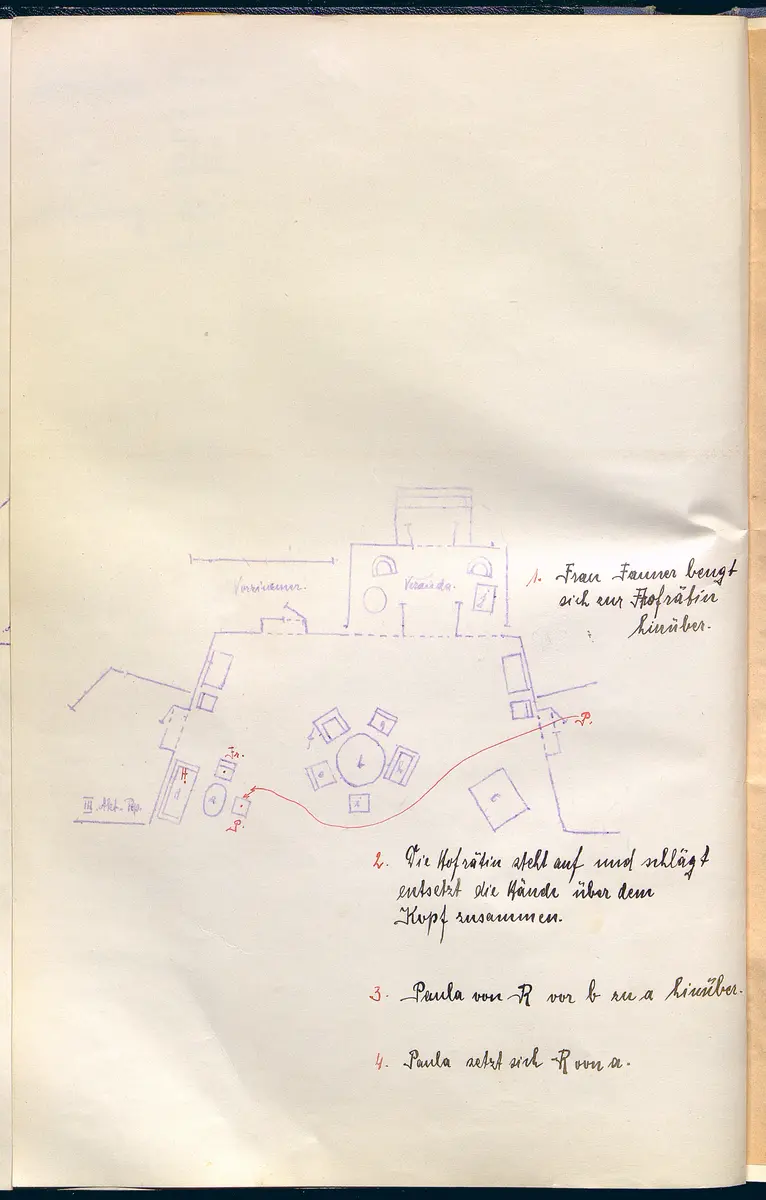 Vorzimmer.
Veranda.
1. Frau Fanner beugt
sich zur Hofrätin
hinüber.
P.
Fr.
H
b
a
c
P.
III. Akt.
2. Die Hofrätin steht auf und schlägt
entsetzt die Hände über dem
Kopf zusammen.
3. Paula von R vor b zu a hinüber.
4. Paula setzt sich R von a.